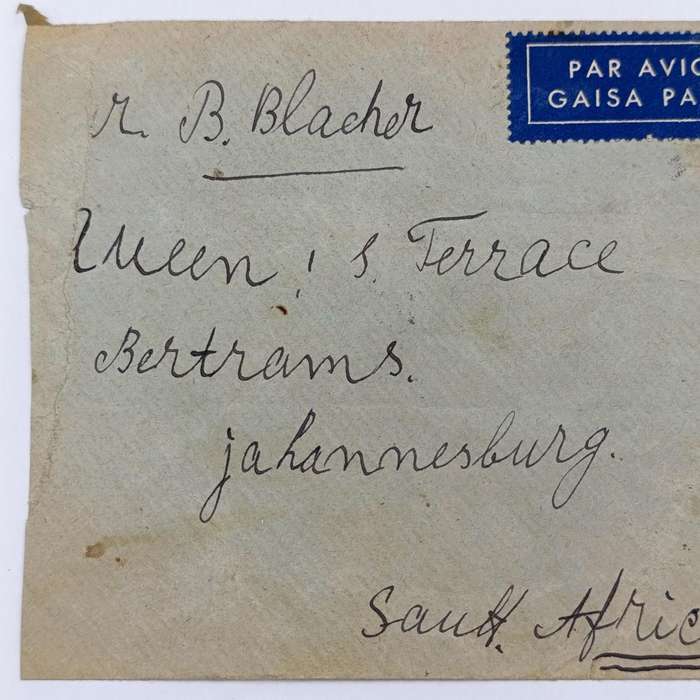 PAR AVIO
GAISA PA
r. B. Blacher
Queen's. Terrace
Bertrams.
Johannesburg.
South. Afric